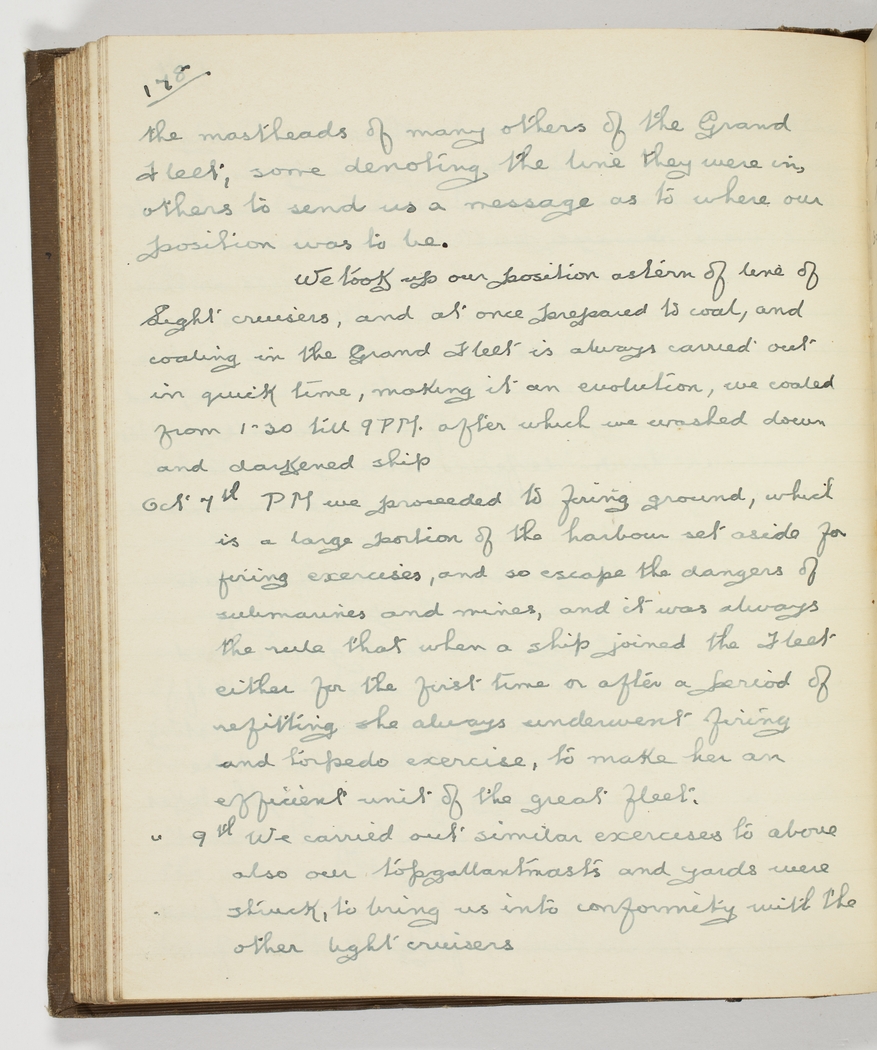 178
the mastheads of many others of the Grand
Fleet, some denoting the line they were in,
others to send us a message as to where our
position was to be.
We took up our position astern of line of
Light cruisers, and at once prepared to coal, and
coaling in the Grand Fleet is always carried out
in quick time, making it an evolution, we coaled
from 1-30 till 9 PM. after which we washed down
and darkened ship
Oct 7th PM we proceeded to firing ground, which
is a large portion of the harbour set aside for
firing exercises, and so escape the dangers of
submarines and mines, and it was always
the rule that when a ship joined the Fleet
either for the first time or after a period of
refitting she always underwent firing
and torpedo exercise, to make her an
efficient unit of the great fleet.
" 9th We carried out similar exercises to above
also our topgallantmasts and yards were
struck, to bring us into conformity with the
other light cruisers